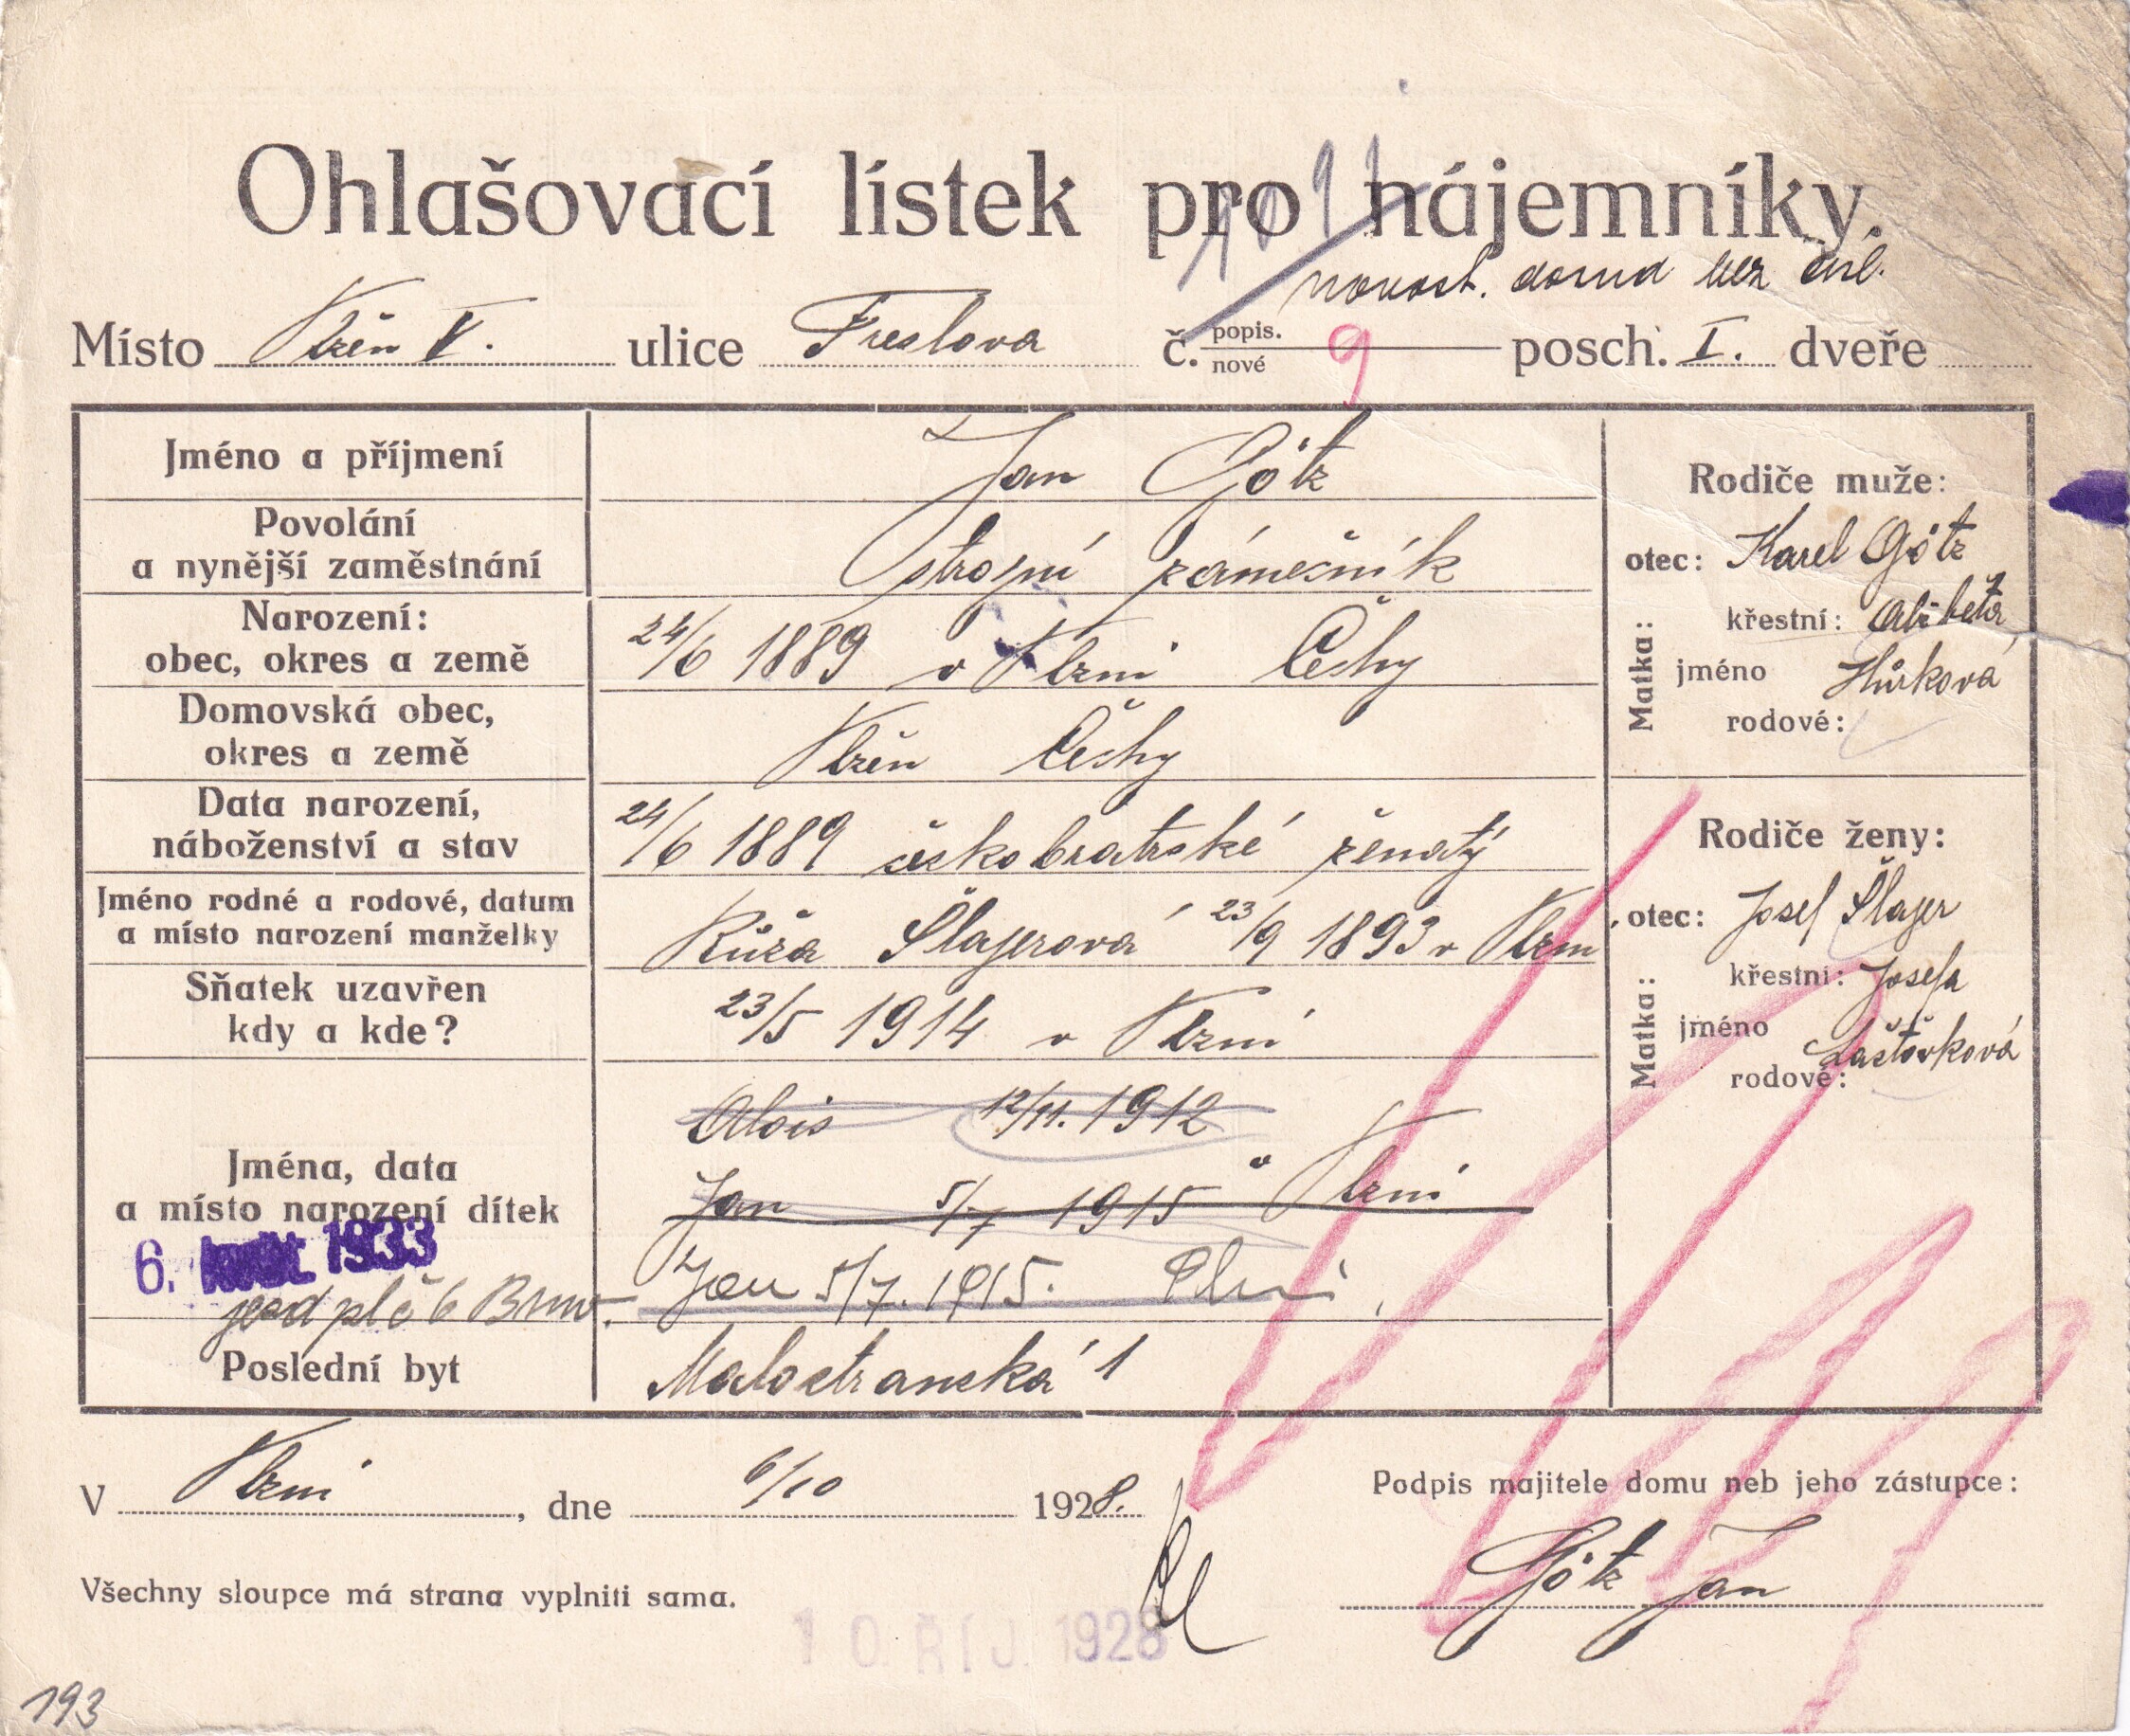 Ohlašovací lístek pro nájemníky.
novost. domu bez čísl.
Místo Plzeň V. ulice Freslova č. popis. nové 9 posch. I. dveře
Jméno a příjmení Jan Götz
Povolání a nynější zaměstnání strojní zámečník
Narození: obec, okres a země 24/6 1889 v Plzni Čechy
Domovská obec, okres a země Plzeň Čechy
Data narození, náboženství a stav 24/6 1889 českobratrské ženatý
Jméno rodné a rodové, datum a místo narození manželky Růža Šlajerová 23/9 1893 v Plzni
Sňatek uzavřen kdy a kde? 23/5 1914 v Plzni
Jména, data a místo narození dítek
Alois 12/11. 1912
Jan 5/7 1915 v Plzni
Jan 5/7. 1915. Plzni
6. 1933
Brno
Poslední byt Malostranská 1
Rodiče muže:
otec: Karel Götz
Matka: křestní: Alžběta
jméno
rodové: Hůrková
Rodiče ženy:
otec: Josef Šlajer
Matka: křestní: Josefa
jméno
rodové: Laštovková
V Plzni, dne 6/10 1928.
Podpis majitele domu neb jeho zástupce:
Götz Jan
Všechny sloupce má strana vyplniti sama.
10. ŘÍJ. 1928
193